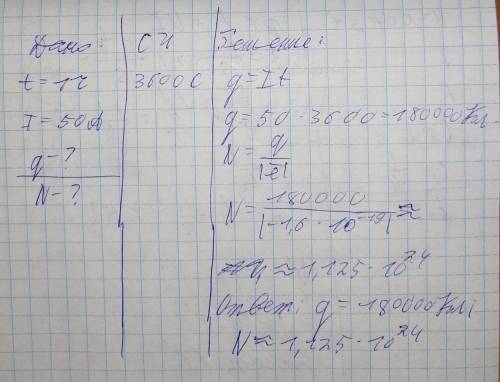 Дано:
t = 1ч
I = 50А
q - ?
N - ?
СИ
3600 с
Решение:
q = It
q = 50 · 3600 = 180000 Кл
N = q / |ē|
N = 180000 / |-1,6 · 10⁻¹⁹| ≈
≈ 1,125 · 10²⁴
Ответ: q = 180000 Кл;
N ≈ 1,125 · 10²⁴